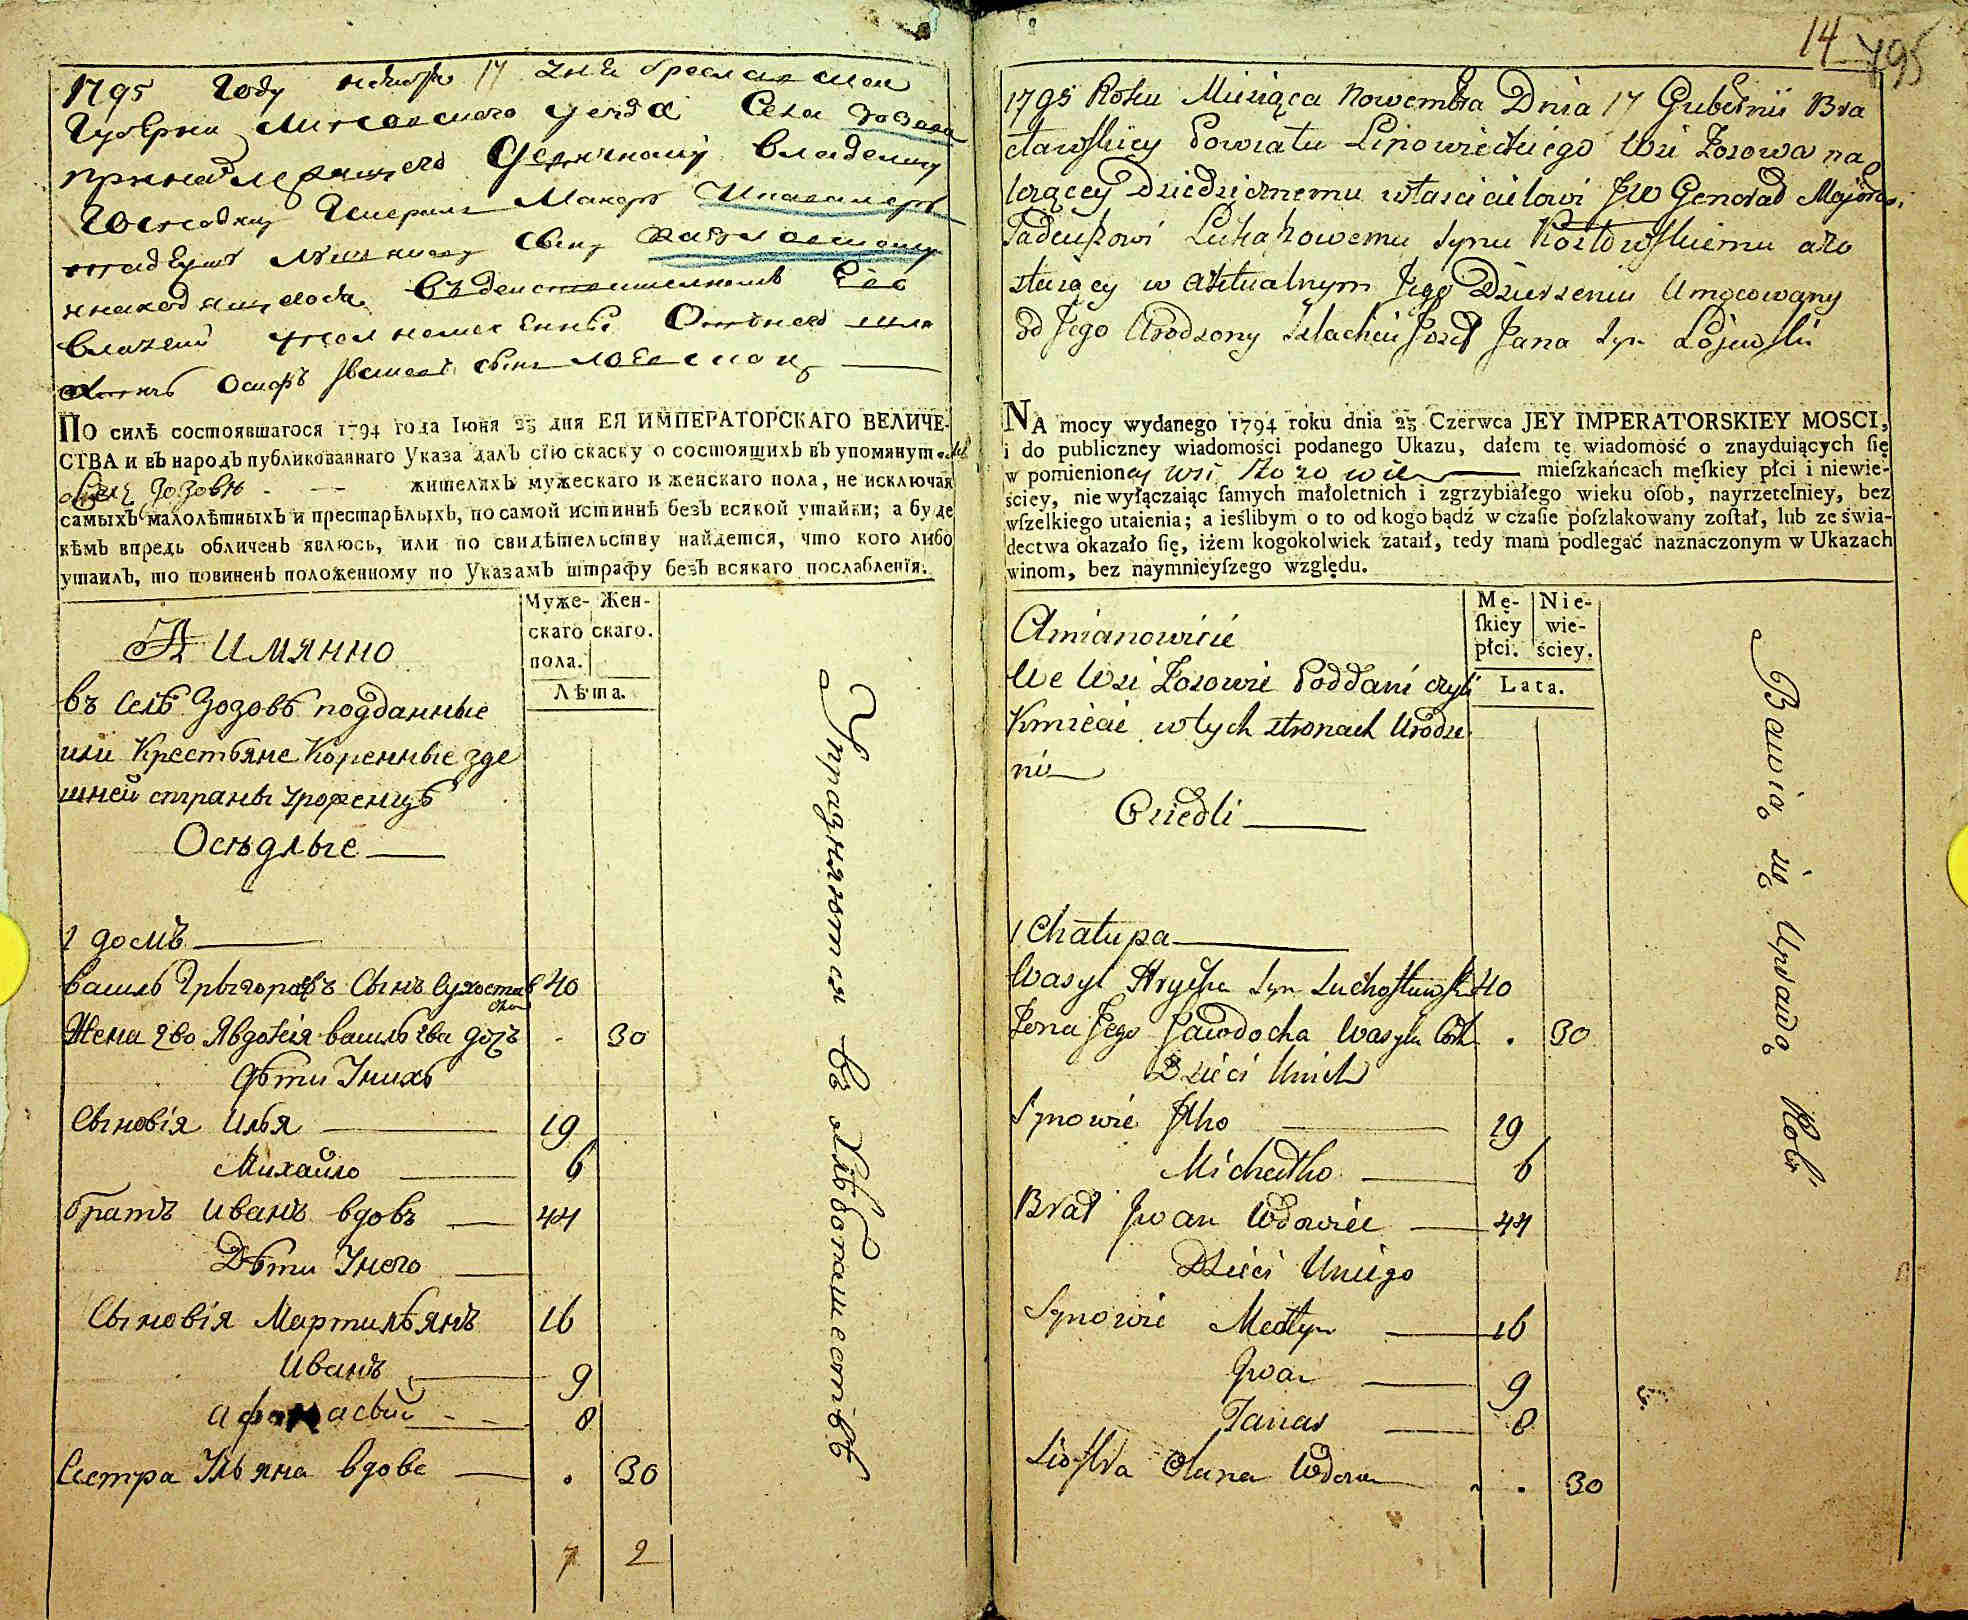 1795 Году ноября 17 дня Бреславской
Губернии Липовецкого уезда Села Зозова
принадлежащего владельцу
Генерал Маиору
сыну Козловскому
Его
Осипъ сынъ
ПО силѣ состоявшагося 1794 года Іюня 23 дня ЕЯ ИМПЕРАТОРСКАГО ВЕЛИЧЕ-
СТВА и въ народъ публикованнаго Указа далъ сію скаску о состоящихъ въ упомянутомъ
Селѣ Зозовѣ жителяхъ мужескаго и женскаго пола, не исключая
самыхъ малолѣтныхъ и престарѣлыхъ, по самой истиннѣ безъ всякой утайки; а буде
кѣмъ впредь обличенъ явлюсь, или по свидѣтельству найдется, что кого либо
утаилъ, то повиненъ положенному по Указамъ штрафу безъ всякаго послабленія.
Муже- Жен-
скаго скаго.
пола.
Лѣта.
А имянно
въ Селѣ Зозовѣ подданные
или Крестьяне Коренные зде
шней страны Урожонцѣ
Осѣдлые
1 домъ
Василь Григоровъ Сынъ Сухостав 40
ской
Жена Яво Явдокія Василь ева дочъ 30
Дѣти У нихъ
Сыновія Илья 19
Михайло 6
Братъ Иванъ вдовъ 44
Дѣти У него
Сыновія Мартильянъ 16
Иванъ 9
Афанасий 8
Сестра Ульяна вдова 30
7 2
Упражняются въ Хлѣбопашествѣ
14 795
1795 Roku Miesiąca Nowembra Dnia 17 Gubernii Bra
cławskiey Powiatu Lipowieckiego Wsi Zozowa na
leżącey Dziedzicznemu właścicielowi JW Generał Majorowi
Tadeuszowi Łukaszowemu synu Kozłowskiemu a zo
staiącey w Aktualnym Jego Dzierzeniu Umocowany
od Jego Urodzony Szlachcic Jozef Jana Syn Łojewski
NA mocy wydanego 1794 roku dnia 23 Czerwca JEY IMPERATORSKIEY MOSCI,
i do publiczney wiadomości podanego Ukazu, dałem tę wiadomość o znayduiących ſię
w pomienioney wsi Zozowie mieſzkańcach męſkiey płci i niewie-
ściey, nie wyłączaiąc ſamych małoletnich i zgrzybiałego wieku oſob, nayrzetelniey, bez
wſzelkiego utaienia; a ieślibym o to od kogo bądź w czaſie poſzlakowany zoſtał, lub ze świa-
dectwa okazało ſię, iżem kogokolwiek zataił, tedy mam podlegać naznaczonym w Ukazach
winom, bez naymnieyſzego względu.
Mę- Nie-
ſkiey wie-
płci. ściey.
Lata.
A mianowicie
We Wsi Zozowie Poddani czyli
Kmiecie w tych stronach Urodze
ni
Osiedli
1 Chałupa
Wasyl Hryćka Syn Suchostawski 40
Żona Jego Jawdocha Wasyla Córk 30
Dzieci U nich
Synowie Ilko 19
Michałko 6
Brat Jwan Wdowiec 44
Dzieci U niego
Synowie 16
Jwan 9
Tanas 8
Siostra Olana Wdowa 30
Bawią się Uprawą Roli